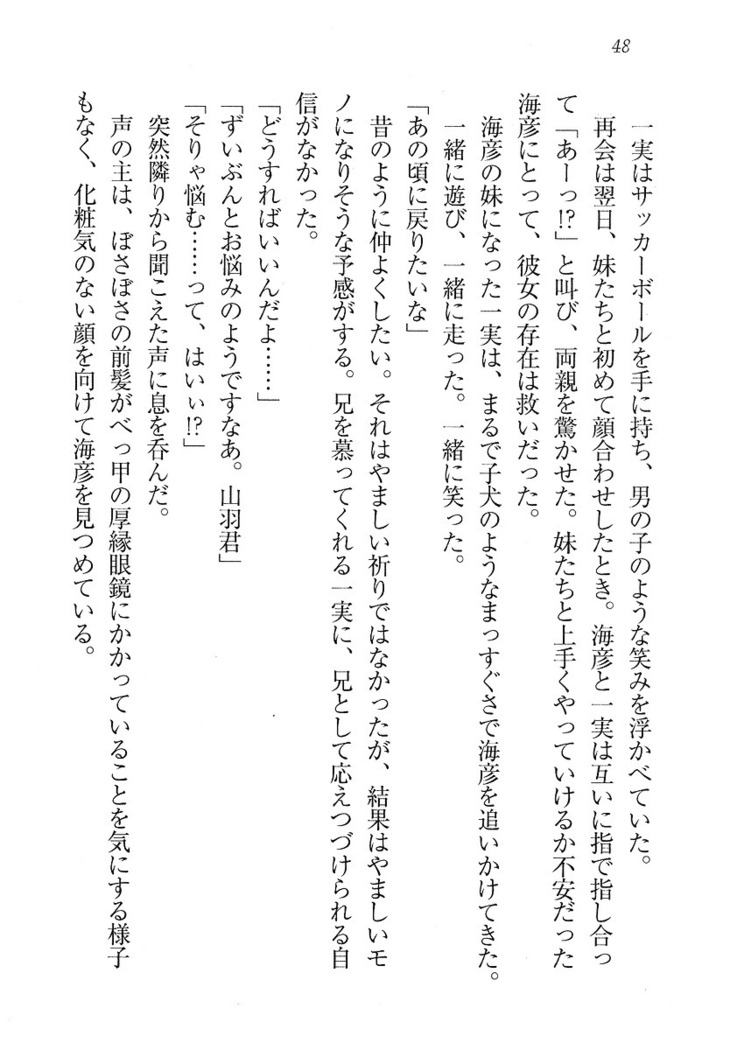 48
一実はサッカーボールを手に持ち、男の子のような笑みを浮かべていた。
再会は翌日、妹たちと初めて顔合わせしたとき。海彦と一実は互いに指で指し合っ
て「あーっ!?」と叫び、両親を驚かせた。妹たちと上手くやっていけるか不安だった
海彦にとって、彼女の存在は救いだった。
海彦の妹になった一実は、まるで子犬のようなまっすぐさで海彦を追いかけてきた。
一緒に遊び、一緒に走った。一緒に笑った。
「あの頃に戻りたいな」
昔のように仲よくしたい。それはやましい祈りではなかったが、結果はやましいモ
ノになりそうな予感がする。兄を慕ってくれる一実に、兄として応えつづけられる自
信がなかった。
「どうすればいいんだよ……」
「ずいぶんとお悩みのようですなあ。山羽君」
「そりゃ悩む……って、はいぃ!?」
突然隣りから聞こえた声に息を呑んだ。
声の主は、ぼさぼさの前髪がべっ甲の厚縁眼鏡にかかっていることを気にする様子
もなく、化粧気のない顔を向けて海彦を見つめている。